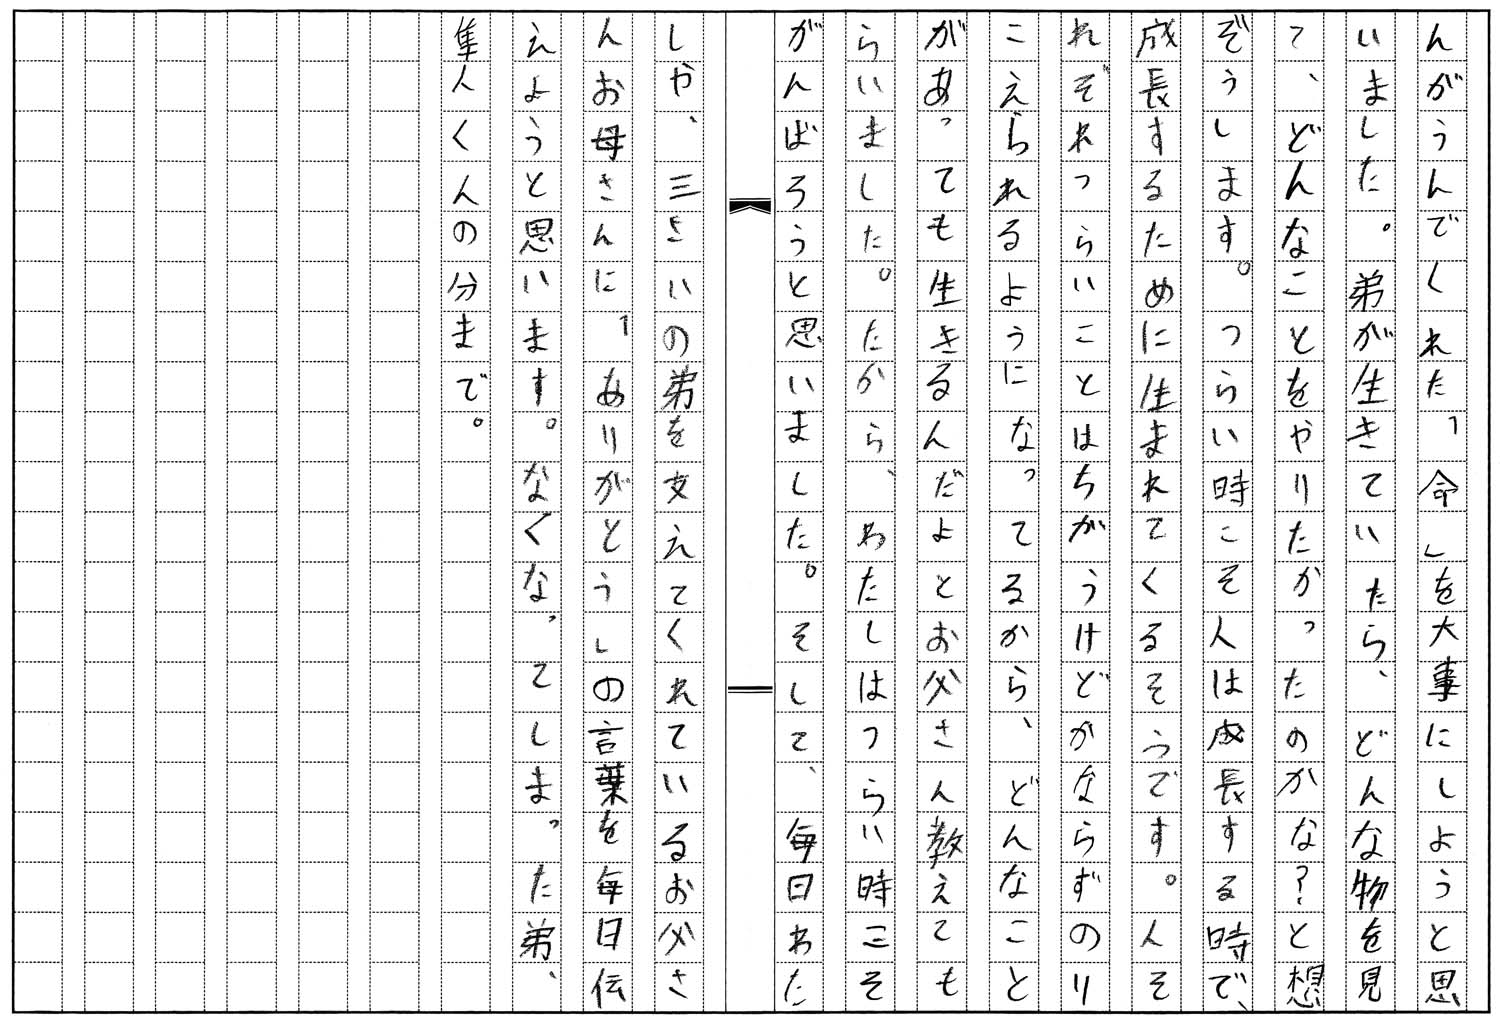 んがうんでくれた、「命」を大事にしようと思
いました。弟が生きていたら、どんな物を見
て、どんなことをやりたかったのかな?と想
ぞうします。つらい時こそ人は成長する時で、
成長するために生まれてくるそうです。人そ
れぞれつらいことはちがうけどかならずのり
こえられるようになってるから、どんなこと
があっても生きるんだよとお父さん教えても
らいました。たから、わたしはつらい時こそ
がんばろうと思いました。そして、毎日わた
しや、三さいの弟を支えてくれているお父さ
んお母さんに、「ありがとう」の言葉を毎日伝
えようと思います。なくなってしまった弟、
隼人くんの分まで。